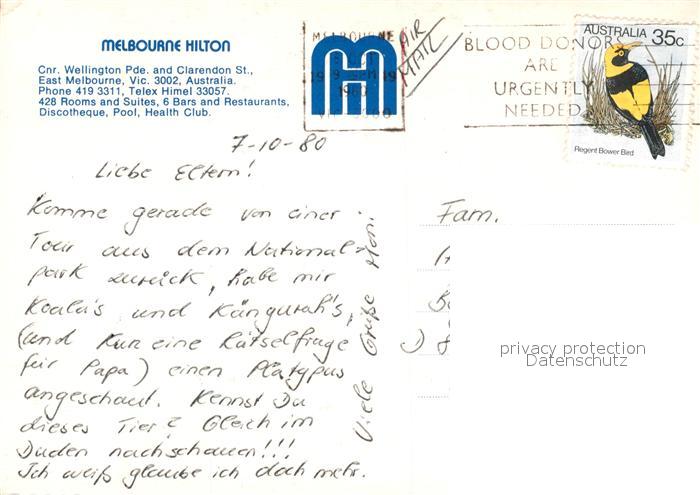 MELBOURNE HILTON
Cnr. Wellington Pde. and Clarendon St.,
East Melbourne, Vic. 3002, Australia.
Phone 419 3311, Telex Himel 33057.
428 Rooms and Suites, 6 Bars and Restaurants,
Discotheque, Pool, Health Club.
MELBOURNE
AIR
MAIL
BLOOD DONORS
ARE
URGENTLY
NEEDED
AUSTRALIA 35c
Regent Bower Bird
7-10-80
Liebe Eltern!
Komme gerade von einer
Tour aus dem National-
park zurück, habe mir
Koala's und Känguruh's,
(und nun eine Rätselfrage
für Papa) einen Platypus
angeschaut. Kennst Du
dieses Tier? Gleich im
Duden nachschauen!!!
Ich weiß glaube ich doch mehr.
Viele Grüße
Fam.
privacy protection
Datenschutz